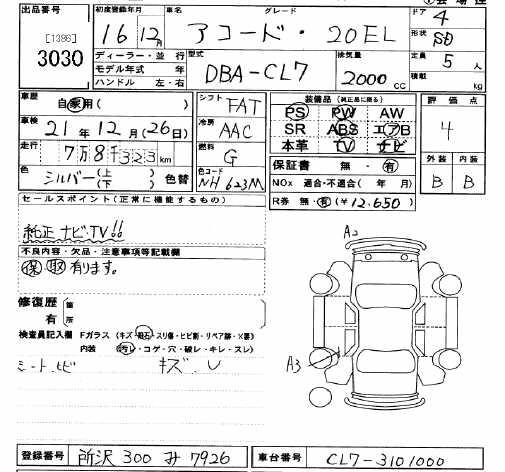 出品番号 初度登録年月 車名 グレード ドア 4
[1386] 16年12月 アコード・20EL 形状 SD
3030 ディーラー・並行 型式 排気量 定員 5人
モデル年式 年 DBA-CL7 2000cc 積載 kg
ハンドル 左・右
車歴 自家用( ) シフト FAT 装備品(純正品に限る) 評価点
車検 21年12月(26日) 冷房 AAC PS PW AW 4
走行 7万8千323km 燃料 G SR ABS エアB
色 シルバー(上)(下) 色替 色コード NH623M 本革 TV ナビ 外装 内装
保証書 無・有 B B
NOx 適合・不適合( 年 月)
セールスポイント(正常に機能するもの) R券 無・有(¥12,650)
純正ナビ・TV!!
不良内容・欠品・注意事項等記載欄
保 取 有ります。
A2
修復歴 箇所
有
検査員記入欄 Fガラス(キズ・飛石・スリ傷・ヒビ割・リペア跡・X要)
内装 (汚レ・コゲ・穴・破レ・キレ・スレ)
シート、ヒビ キズ、U
A3
登録番号 所沢 300 み 7926 車台番号 CL7-3101000